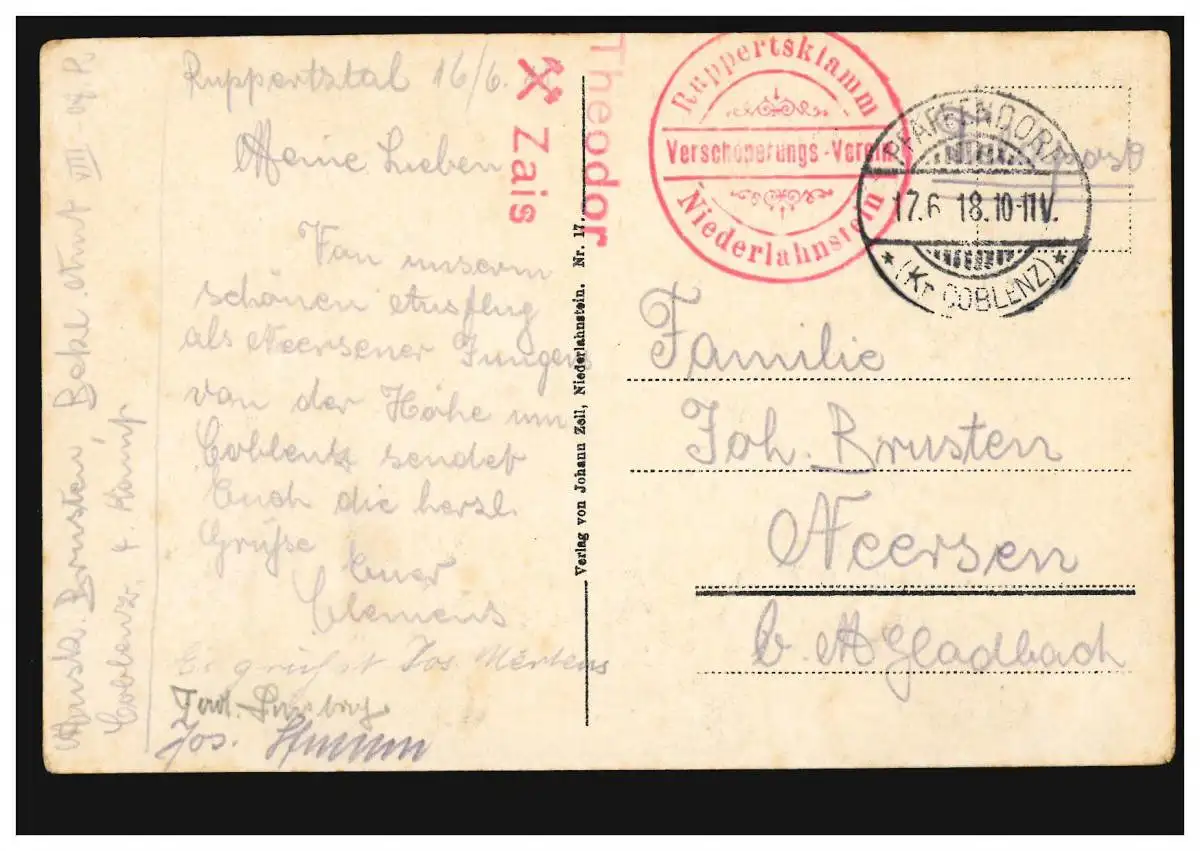 Ruppertstal 16/6.
Meine Lieben
Von unserm
schönen Ausflug
als Neersener Jungens
von der Höhe um
Coblentz sendet
Euch die herzl.
Grüße Euer
Clemens
Es grüßt Jos Mertens
Jos.
Musk. Brusten Bekl. Amt VIII
Coblenz
Theodor
Zais
Ruppertsklamm
Verschönerungs-Verein
Niederlahnstein
PFAFFENDORF
17.6 18.10-11V.
* (Kr COBLENZ) *
Verlag von Johann Zell, Niederlahnstein. Nr. 17.
Familie
Joh. Brusten
Neersen
b. M Gladbach